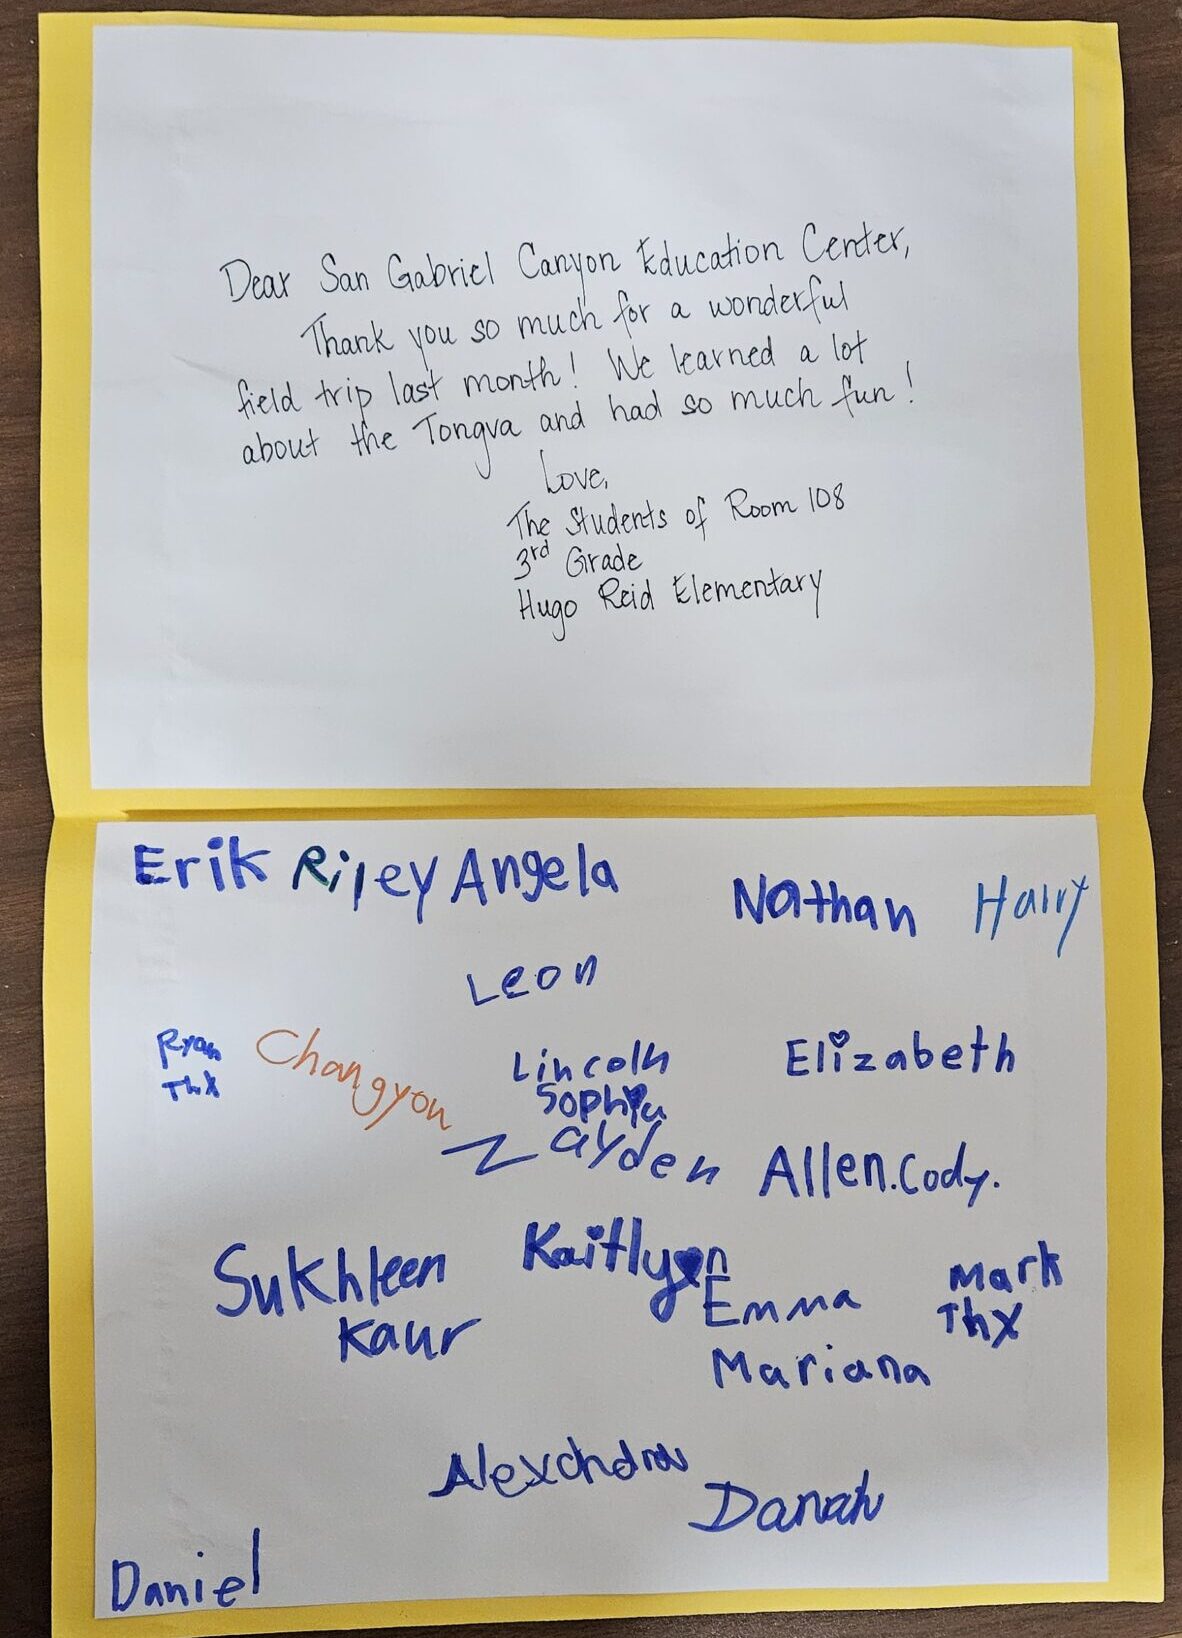 Dear San Gabriel Canyon Education Center,
Thank you so much for a wonderful
field trip last month! We learned a lot
about the Tongva and had so much fun!
Love,
The Students of Room 108
3rd Grade
Hugo Reid Elementary
Erik Riley Angela
Nathan Harry
Leon
Ryan
Thx
Changyon
Lincoln
Sophia
Elizabeth
Zayden
Allen. Cody.
Sukhleen
Kaur
Kaitlyn
Emma
Mariana
Mark
Thx
Alexandra
Daniel